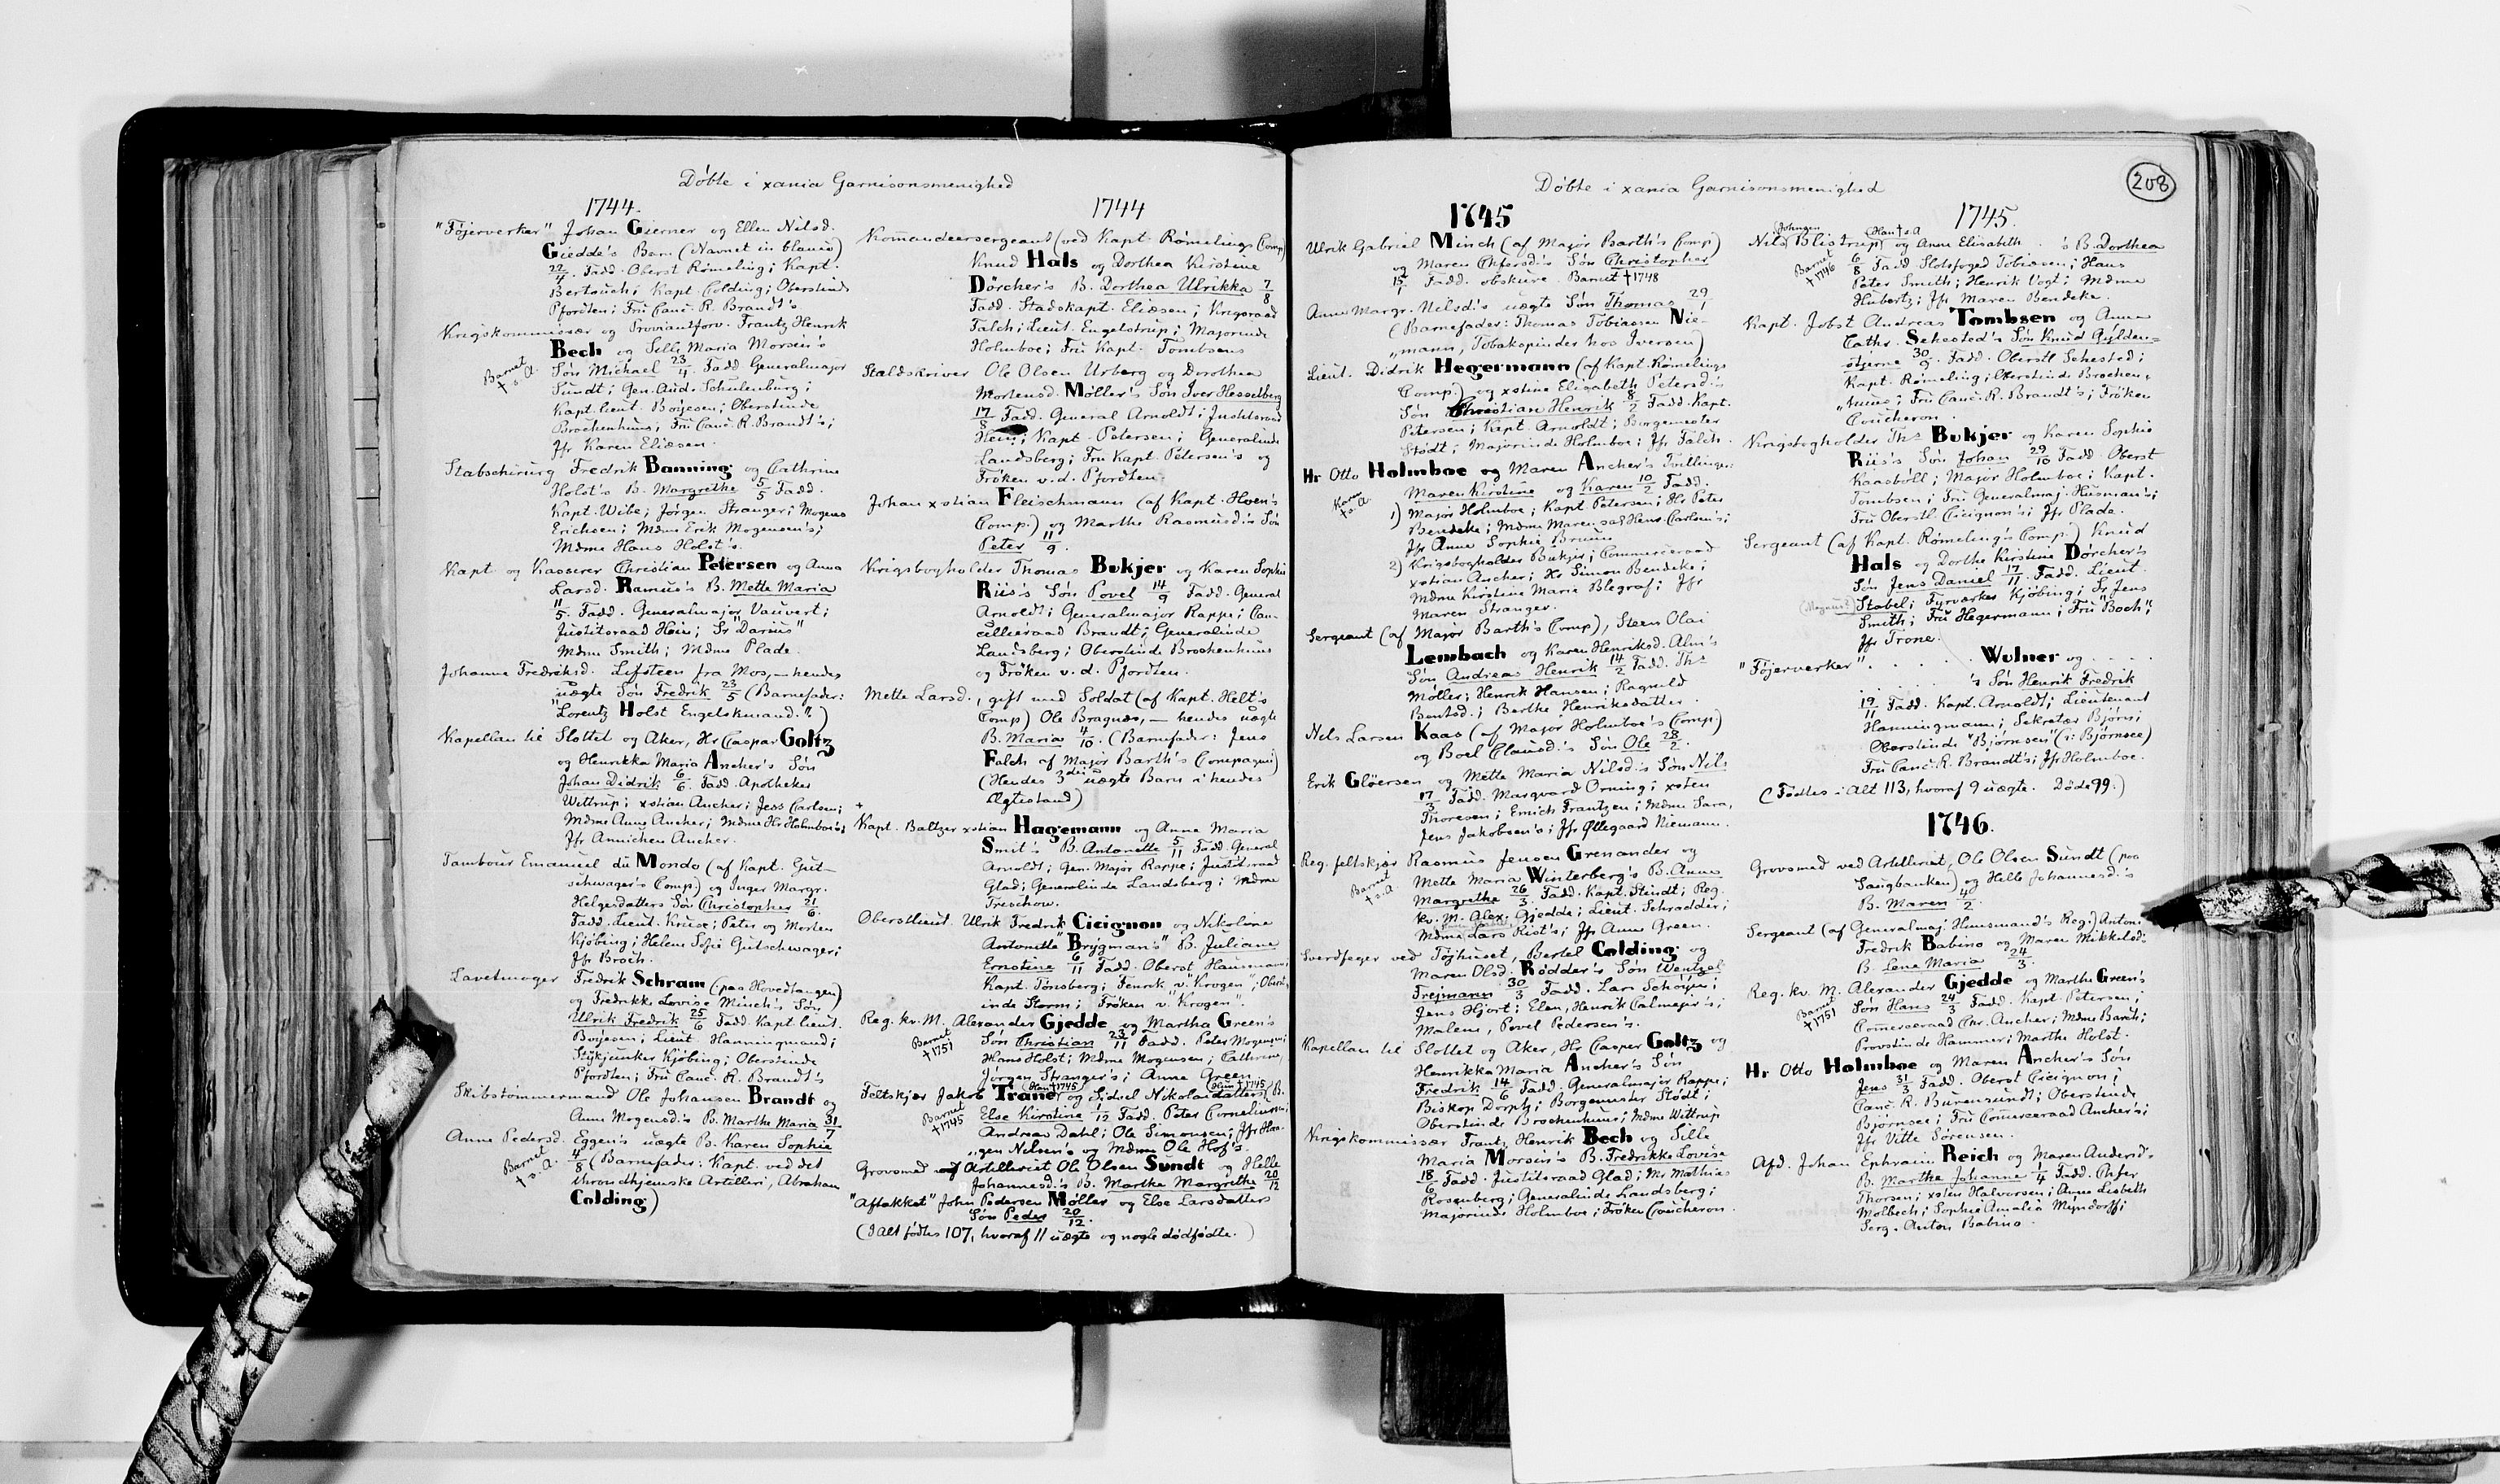 Döbte i xania Garnisonsmenighed
1744.
"Föjerverker" Johan Gierner og Ellen Nilsd.
Giedde's Barn (Navnet in blanco)
22/4. Fadd. Oberst Römeling; Kapt.
Bertouch; Kapt. Colding; Oberstinde
Pfordten; Fru Canc. R. Brandt's
Krigskommissær og Proviantforv. Frantz Henrik
Bech og Sille Maria Morsin's
Barnet † s. A.
Søn Michael 23/4. Fadd Generalmajor
Sundt; Gen. Aud. Schulenburg;
Kapt. lieut. Boÿesen; Oberstinde
Brockenhuus; Fru Canc. R. Brandt's;
Jfr Karen Eliesen.
Stabschirurg Fredrik Banning og Cathrine
Holst's B. Margrethe 5/5 Fadd.
Kapt. Wibe; Jörgen Stranger; Mogens
Erichsen; Mdme Erik Mogensen's;
Mdme Hans Holst's.
Kapt og Kasserer Christian Petersen og Anna
Larsd. Ramus's B. Mette Maria
11/5. Fadd. Generalmajor Vauvert;
Justitsraad Hein; Sr "Darius"
Mdme Smith; Mdme Plade.
Johanne Fredriksd. Lifsteen fra Mos, — hendes
uægte Søn Fredrik 23/5 (Barnefader:
"Lorentz Holst Engelskmand".)
Kapellan til Slottet og Aker, Hr Caspar Goltz
og Henrikka Maria Ancher's Søn
Johan Didrik 6/6. Fadd. Apotheker
Wittrup; xstian Ancher; Jess Carlsen;
Mdme Anna Ancher; Mdme Hr Holmboe's;
Jfr Annichen Ancher.
Tambour Emanuel du Mondo (af Kapt. Gut-
schwager's Comp.) og Inger Margr.
Helgesdatters Søn Christopher 21/6.
Fadd. Lieut. Kruse; Peter og Morten
Kjöbing; Helene Sofie Gutschwager;
Jfr Broch.
Lavetmager Fredrik Schram (paa Hovedtangen)
og Fredrikke Lovise Münch's Søn
Ulrik Fredrik 25/6 Fadd. Kapt. lieut.
Boÿesen; Lieut Hanningmand;
Stykjunker Kjöbing; Oberstinde
Pfordten; Fru Canc. R. Brandt's
Skibstömmermand Ole Johansen Brandt og
Anne Mogensd's B. Marthe Maria 31/7
Anne Pedersd. Eggen's uægte B. Karen Sophie
Barnet † s. A.
4/8 (Barnefader: Kapt. ved det
thrондhjemske Artilleri, Abraham
Colding)
1744
Kommandeersergeant (ved Kapt. Römelings Comp)
Knud Hals og Dorthea Kirstine
Dörcher's B. Dorthea Ulrikka 7/8
Fadd. Stadskapt. Eliesen; Krigsraad
Falch; Lieut. Engelstrup; Majorinde
Holmboe; Fru Kapt. Tombsens
Stældskriver Ole Olsen Urberg og Dorothea
Mortensd. Möller's Søn Iver Hesselberg
17/8 Fadd. General Arnoldt; Justitsraad
Hein; Kapt. Petersen; Generalinde
Landsberg; Fru Kapt. Petersen's og
Fröken v. d. Pfordten.
Johan xstian Fleischmann (af Kapt. Huen's
Comp.) og Marthe Rasmusd's Søn
Peter 11/9.
Krigsbogholder Thomas Bukjer og Karen Sophie
Riis's Søn Povel 14/9 Fadd. General
Arnoldt; Generalmajor Rappe; Can-
cellieraad Brandt; Generalinde
Landsberg; Oberstinde Brockenhuus
og Fröken v. d. Pfordten.
Mette Larsd., gift med Soldat (af Kapt. Helt's
Comp) Ole Bragnæs, — hendes uægte
B. Maria 4/10. (Barnefader: Jens
Falch af Major Barth's Compagni)
(Hendes 3die uægte Barn i hendes
Ægtestand)
Kapt. Baltzer xstian Hagemann og Anne Maria
Smit's B. Antonette 5/11 Fadd. General
Arnoldt; Gen. Major Rappe; Justitsraad
Glad; Generalinde Landsberg; Mdme
Treschow.
Oberstlieut. Ulrik Fredrik Cicignon og Nikoline
Antonette "Brÿgman's" B. Juliane
Ernstine 6/11 Fadd. Oberst Hausmann;
Kapt. Tönsberg; Fenrik v. "Krogen"; Oberst-
inde Storm; Fröken v. "Krogen".
Reg. kv. M. Alexander Gjedde og Martha Green's
Barnet † 1751
Søn Christian 23/11 Fadd. Peter Mogensen;
Hans Holst; Mdme Mogensen; Cathrine,
Jörgen Stranger's; Anne Green.
(Han † 1745) (Hun † 1745)
Feltskjær Jakob Trane og Sidsel Nikolaidatters B.
Barnet † 1745
Else Kirstine 1/12 Fadd. Peter Cornelius;
Andreas Dahl; Ole Simonsen; Jfr Han-
"gen Nilsen's og Mdme Ole Hof's.
Grovsmed ved Artilleriet Ole Olsen Sundt og Helle
Johannesd.'s B. Marthe Margrethe 20/12
"Aftakket" John Pedersen Møller og Else Larsdatters
Søn Peder 20/12.
(I Alt födtes 107, hvoraf 11 uægte og nogle dödfödte.)
208
Döbte i xania Garnisonsmenighed
1745
Ulrik Gabriel Minch (af Major Barth's Comp)
og Maren Chfersd's Søn Christopher
15/1 Fadd. obskure. Barnet † 1748
Anne Margr. Nilsd.'s uægte Søn Thomas 29/1
(Barnefader: Thomas Tobiassen Nie-
"mann, Tobakspinder hos Iversen)
Lieut. Didrik Hegermann (af Kapt. Römelings
Comp.) og xstine Elisabeth Petersd's
Søn Christian Henrik 8/2 Fadd. Kapt.
Petersen; Kapt. Arnoldt; Borgemester
Stödt; Majorinde Holmboe; Jfr Falch.
Hr Otto Holmboe og Maren Ancher's Tvillinger:
Karen † s. A.
Maren Kirstine og Karen 10/2 Fadd.
1) Major Holmboe; Kapt. Petersen; Hr Peter
Bendeke; Mdme Maren sal Henr. Carlsen's;
Jfr Anne Sophie Bruun
2) Krigsbogholder Bukjer; Commerceraad
xstian Ancher; Hr Simon Bendeke;
Mdme Kirstine Marie Blegraf; Jfr
Maren Stranger.
Sergeant (af Major Barth's Comp), Steen Olai
Lembach og Karen Henriksd. Alm's
Søn Andreas Henrik 14/2 Fadd. Ths
Möller; Henrik Hansen; Ragnild
Bentsd.; Berthe Henriksdatter.
Nils Larsen Kaas (af Major Holmboe's Comp)
og Boel Clausd.'s Søn Ole 28/2.
Erik Glöersen og Mette Maria Nilsd.'s Søn Nils
17/3 Fadd. Marqvard Orning; xsten
Thoresen; Emich Frantzen; Mdme Sara,
Jens Jakobsen's; Jfr Øllegaard Niemann.
Reg. feltskjær Rasmus Jensen Grenander og
Mette Maria Winterberg's B. Anne
Barnet † s. A.
Margrethe 26/3 Fadd. Kapt. Stindt; Reg.
kv. M. Alex. Gjedde; Lieut. Schrædder;
Mdme Lars Rist's; Jfr Anne Green.
Sverdfeger ved Töjhuset, Bertel Colding og
Maren Olsd. Rödder's Søn Wentzel
Frejmann 30/3 Fadd. Lars Schöÿen;
Jens Hjort; Elen, Henrik Calmeyer's;
Malene, Povel Pedersen's.
Kapellan til Slottet og Aker, Hr Casper Goltz og
Henrikka Maria Ancher's Søn
Fredrik 14/6 Fadd. Generalmajor Rappe;
Biskop Dorph; Borgemester Stödt;
Oberstinde Brockenhuus; Mdme Wittrup
Krigskommissær Frantz Henrik Bech og Sille
Maria Morsin's B. Fredrikke Lovise
18/6 Fadd. Justitsraad Glad; Mr Mathias
Rosenberg; Generalinde Landsberg;
Majorinde Holmboe; Fröken Coucheron.
1745.
Johnsen (Han † s. A
Nils Blistrup og Anne Elisabeth . 's B. Dorthea
Barnet † 1746
6/8 Fadd Slotsfoged Tobiesen; Hans
Peter Smith; Henrik Vogt; Mdme
Hubertz; Jfr Maren Bendeke.
Kapt. Jobst Andreas Tombsen og Anna
Cathr. Sehested's Søn Knud Gylden-
stjerne 30/9. Fadd. Oberstl Sehested;
Kapt. Römeling; Oberstinde Brocken-
"huus; Fru Canc. R. Brandt's; Fröken
Coucheron.
Krigsbogholder Ths Bukjer og Karen Sophie
Riis's Søn Johan 29/10 Fadd. Oberst
Kaasböll; Major Holmboe; Kapt.
Tombsen; Fru Generalmaj. Husman's;
Fru Oberstl. Cicignon's; Jfr Plade.
Sergeant (af Kapt. Römeling's Comp.) Knud
Hals og Dorthe Kirstine Dörcher's
Søn Jens Daniel 17/11. Fadd. Lieut.
(Magnus?) Stabel; Fyrværker Kjöbing; Sr Jens
Smith; Fru Hegermann; Fru "Boch";
Jfr Trone.
"Föjerverker" . . . . Wulner og . . . .
. . . . 's Søn Henrik Fredrik
19/11 Fadd. Kapt. Arnoldt; Lieutenant
Hanningmann; Sekretær Björn;
Oberstinde "Björnsen" (ɔ: Björnsee)
Fru Canc. R. Brandt's; Jfr Holmboe.
(Födtes i Alt 113, hvoraf 9 uægte. Döde 99.)
1746.
Grovsmed ved Artilleriet, Ole Olsen Sundt (paa
Saugbanken) og Helle Johannesd.'s
B. Maren 4/2.
Sergeant (af Generalmaj. Hunsmand's Reg.) Anton
Fredrik Babino og Maren Mikkelsd's
B. Lena Maria 24/3.
Reg. kv. M. Alexander Gjedde og Marthe Green's
Barnet † 1751
Søn Hans 24/3 Fadd. Kapt. Petersen;
Commerceraad Chr. Ancher; Mdme Barth;
Provstinde Hammer; Marthe Holst.
Hr Otto Holmboe og Maren Ancher's Søn
Jens 31/3 Fadd. Oberst Cicignon;
Canc. R. Burensundt; Oberstinde
Björnsee; Fru Commerceraad Ancher's;
Jfr Vitte Sörensen.
Afd. Johan Ephraim Reich og Maren Andersd's
B. Marthe Johanne 1/4 Fadd. Peter
Thorsen; xsten Halvorsen; Anne Lisbeth
Molbech; Sophie Amalia Myndorff;
Serg. Anton Babino.